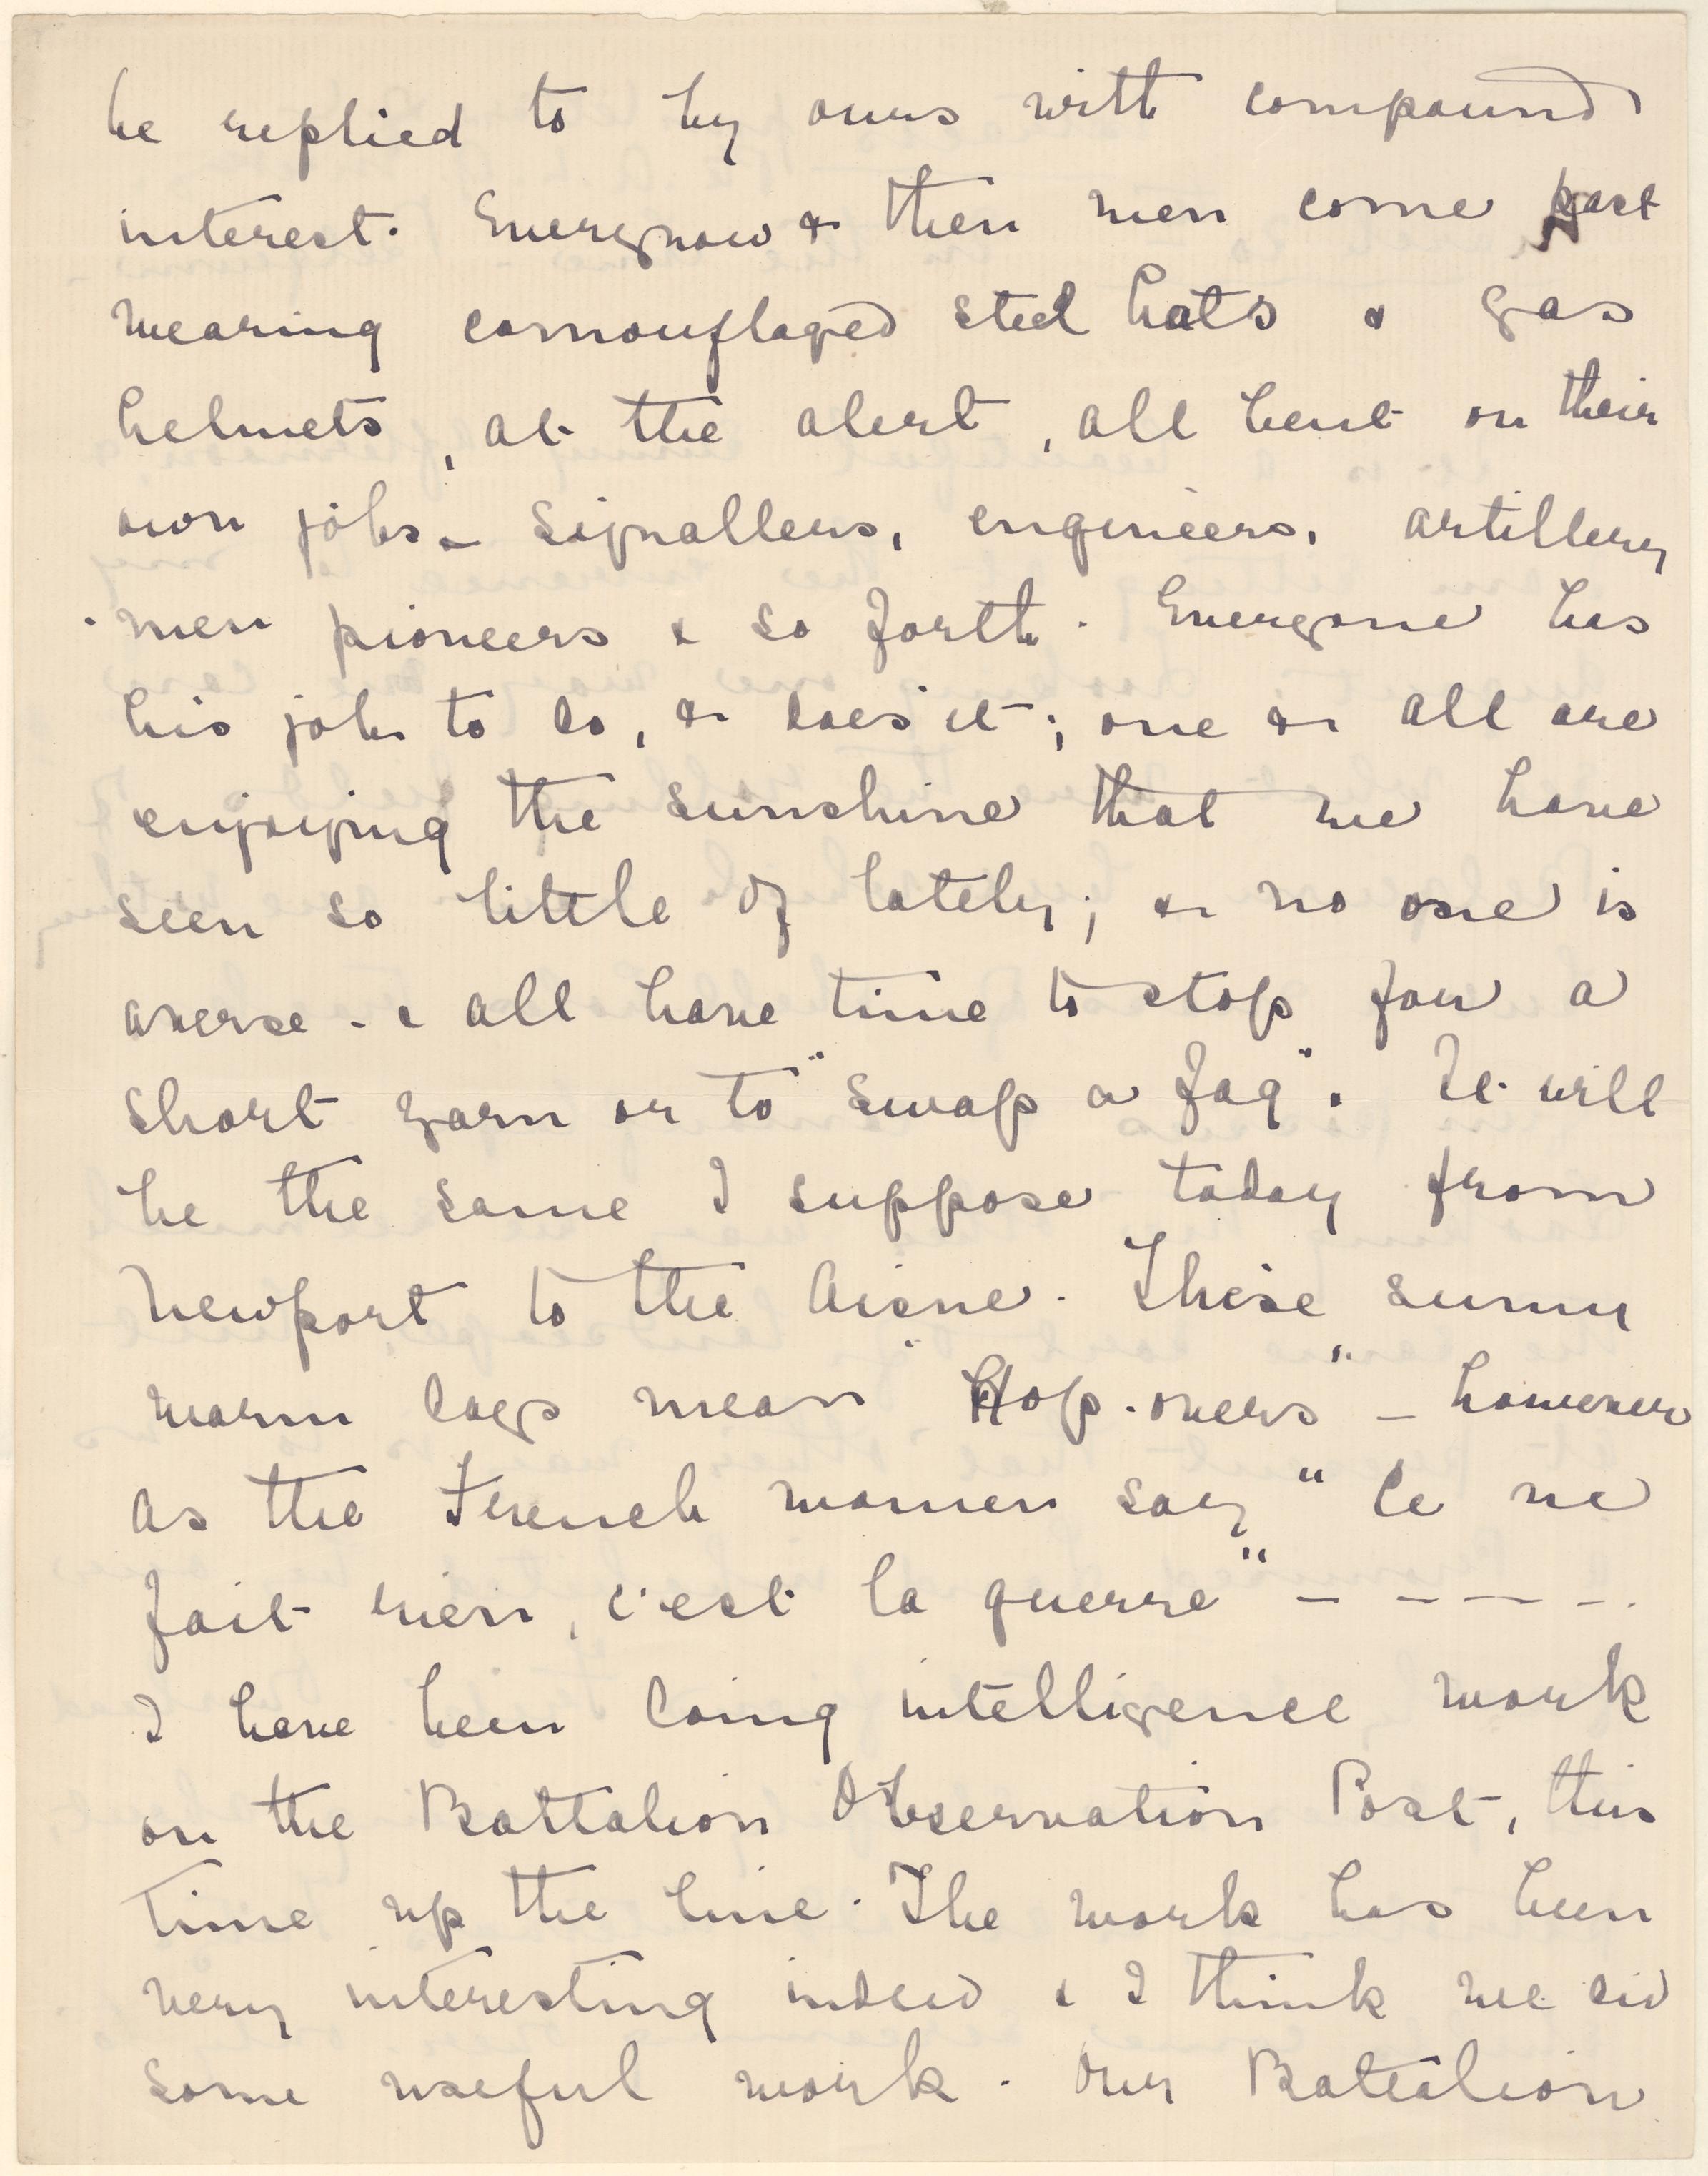 be replied to by ours with compound
interest. Every now & then men come past
wearing camouflaged steel hats & gas
helmets, at the alert, all bent on their
own jobs - signallers, engineers, artillery
men pioneers & so forth. Everyone has
his job to do, & does it; one & all are
enjoying the sunshine that we have
seen so little of lately; & no one is
averse - & all have time to stop for a
short yarn or to "swap a fag". It will
be the same I suppose today from
Newport to the Aisne. These sunny
warm days mean "Hop-overs" - however
as the French women say "Ce ne
fait rien, c'est la guerre" - - - - .
I have been doing intelligence work
on the Battalion Observation Post, this
time up the line. The work has been
very interesting indeed & I think we did
some useful work. Our Battalion